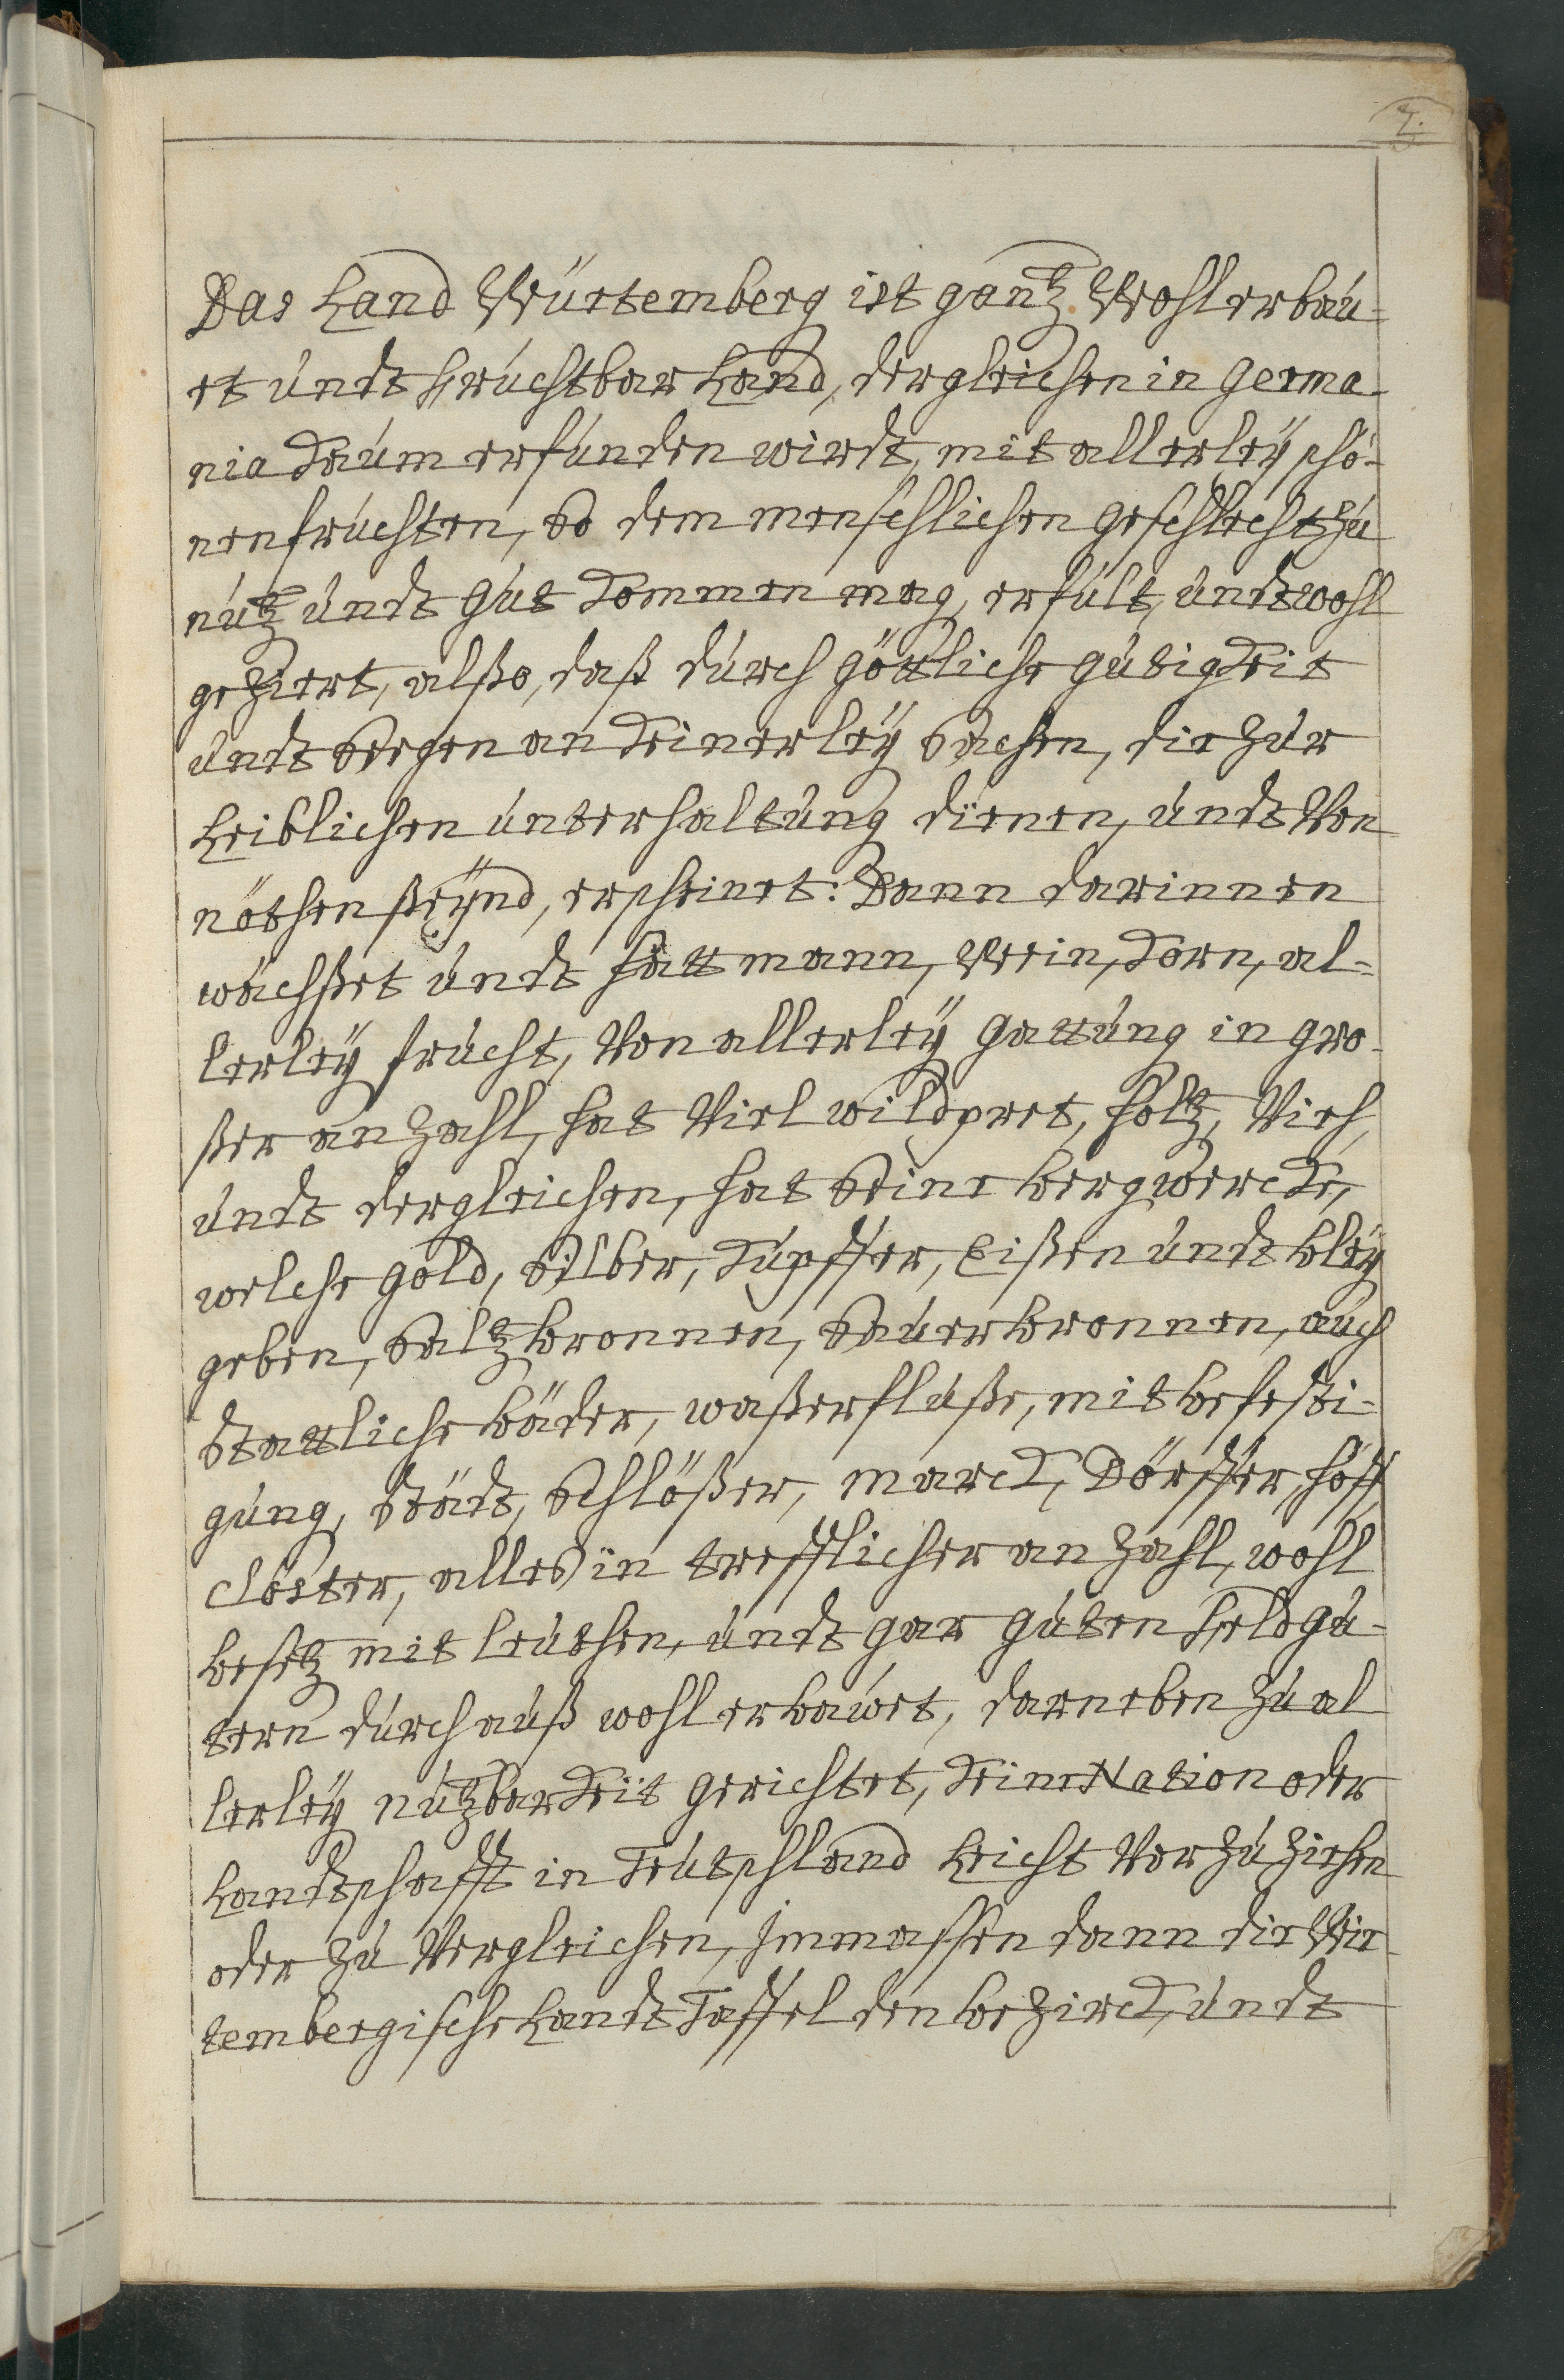 2.
Das Land Würtemberg ist gantz Wohl erbau-
et undt Fruchtbar Land, dergleichen in Germa-
nia kaum erfunden wirdt, mit allerleÿ schö-
nen fruchten, So dem menschlichen geschlecht zu
nutz undt gut kommen mag, erfült, undt wohl
geziert, alßo, daß durch göttliche gütigkeit
undt Seegen an keinerleÿ Sachen, die zur
Leiblichen unterhaltung dienen, undt Von
nöthen ßeÿnd, erscheinet: Dann darinnen
wächßet undt hatt mann, Wein, korn, al-
lerleÿ frucht, Von allerleÿ gattung in gro-
ßer anzahl, hat Viel wildpret, holtz, Vieh,
undt dergleichen, hat Seine bergwercke,
welche gold, Silber, kupffer, Eißen undt bleÿ
geben, Saltzbronnen, Sauerbronnen, auch
Stattliche bäder, waßerflüße, mit befesti-
gung, Städt, Schlößer, marck, Dörffer, höff
clöster, alles in trefflicher anzahl, wohl
besetz mit leuthen, undt gar guten Feldgü-
tern durchauß wohl erbawet, darneben zu al
lerleÿ nutzbarkeit gerichtet, keine Nation oder
Landtschafft in Teutschland Leicht Vorzuziehen
oder zu Vergleichen, Immassen dann die Wir-
tembergische Landt Taffel den bezirck, undt